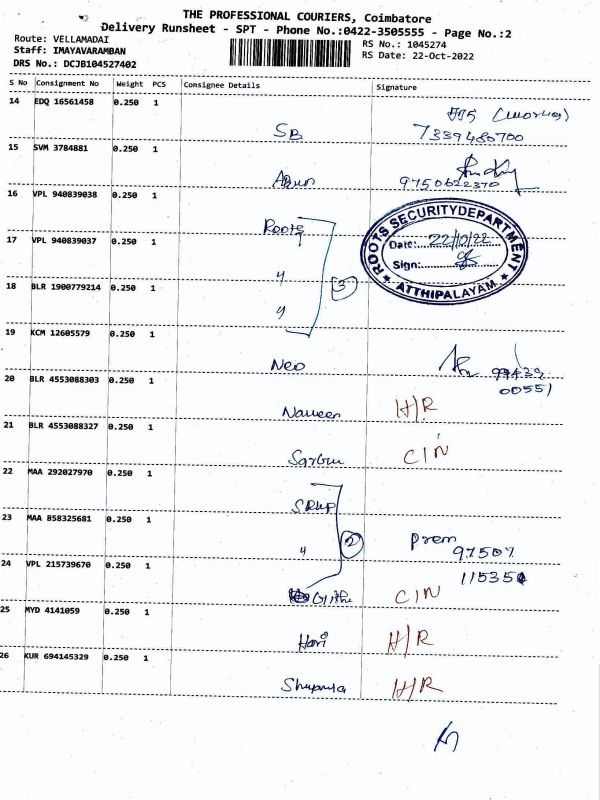 THE PROFESSIONAL COURIERS, Coimbatore
Delivery Runsheet - SPT - Phone No.:0422-3505555 - Page No.:2
Route: VELLAMADAI
RS No.: 1045274
Staff: IMAYAVARAMBAN
RS Date: 22-Oct-2022
DRS No.: DCJB104527402
S No Consignment No Weight PCS Consignee Details Signature
14 EDQ 16561458 0.250 1
SB 7339480700
15 SVM 3784881 0.250 1
9750622370
16 VPL 940839038 0.250 1
Roots
17 VPL 940839037 0.250 1
ROOTS SECURITY DEPARTMENT
Date: 22/10/22
Sign:
ATTHIPALAYAM
18 BLR 1900779214 0.250 1
3
19 KCM 12605579 0.250 1
Neo
20 BLR 4553088303 0.250 1
00551
Naveen H/R
21 BLR 4553088327 0.250 1
C/N
22 MAA 292027970 0.250 1
23 MAA 858325681 0.250 1
2
Prem
97507
24 VPL 215739670 0.250 1
C/N
25 MYD 4141059 0.250 1
Hari H/R
26 KUR 694145329 0.250 1
H/R